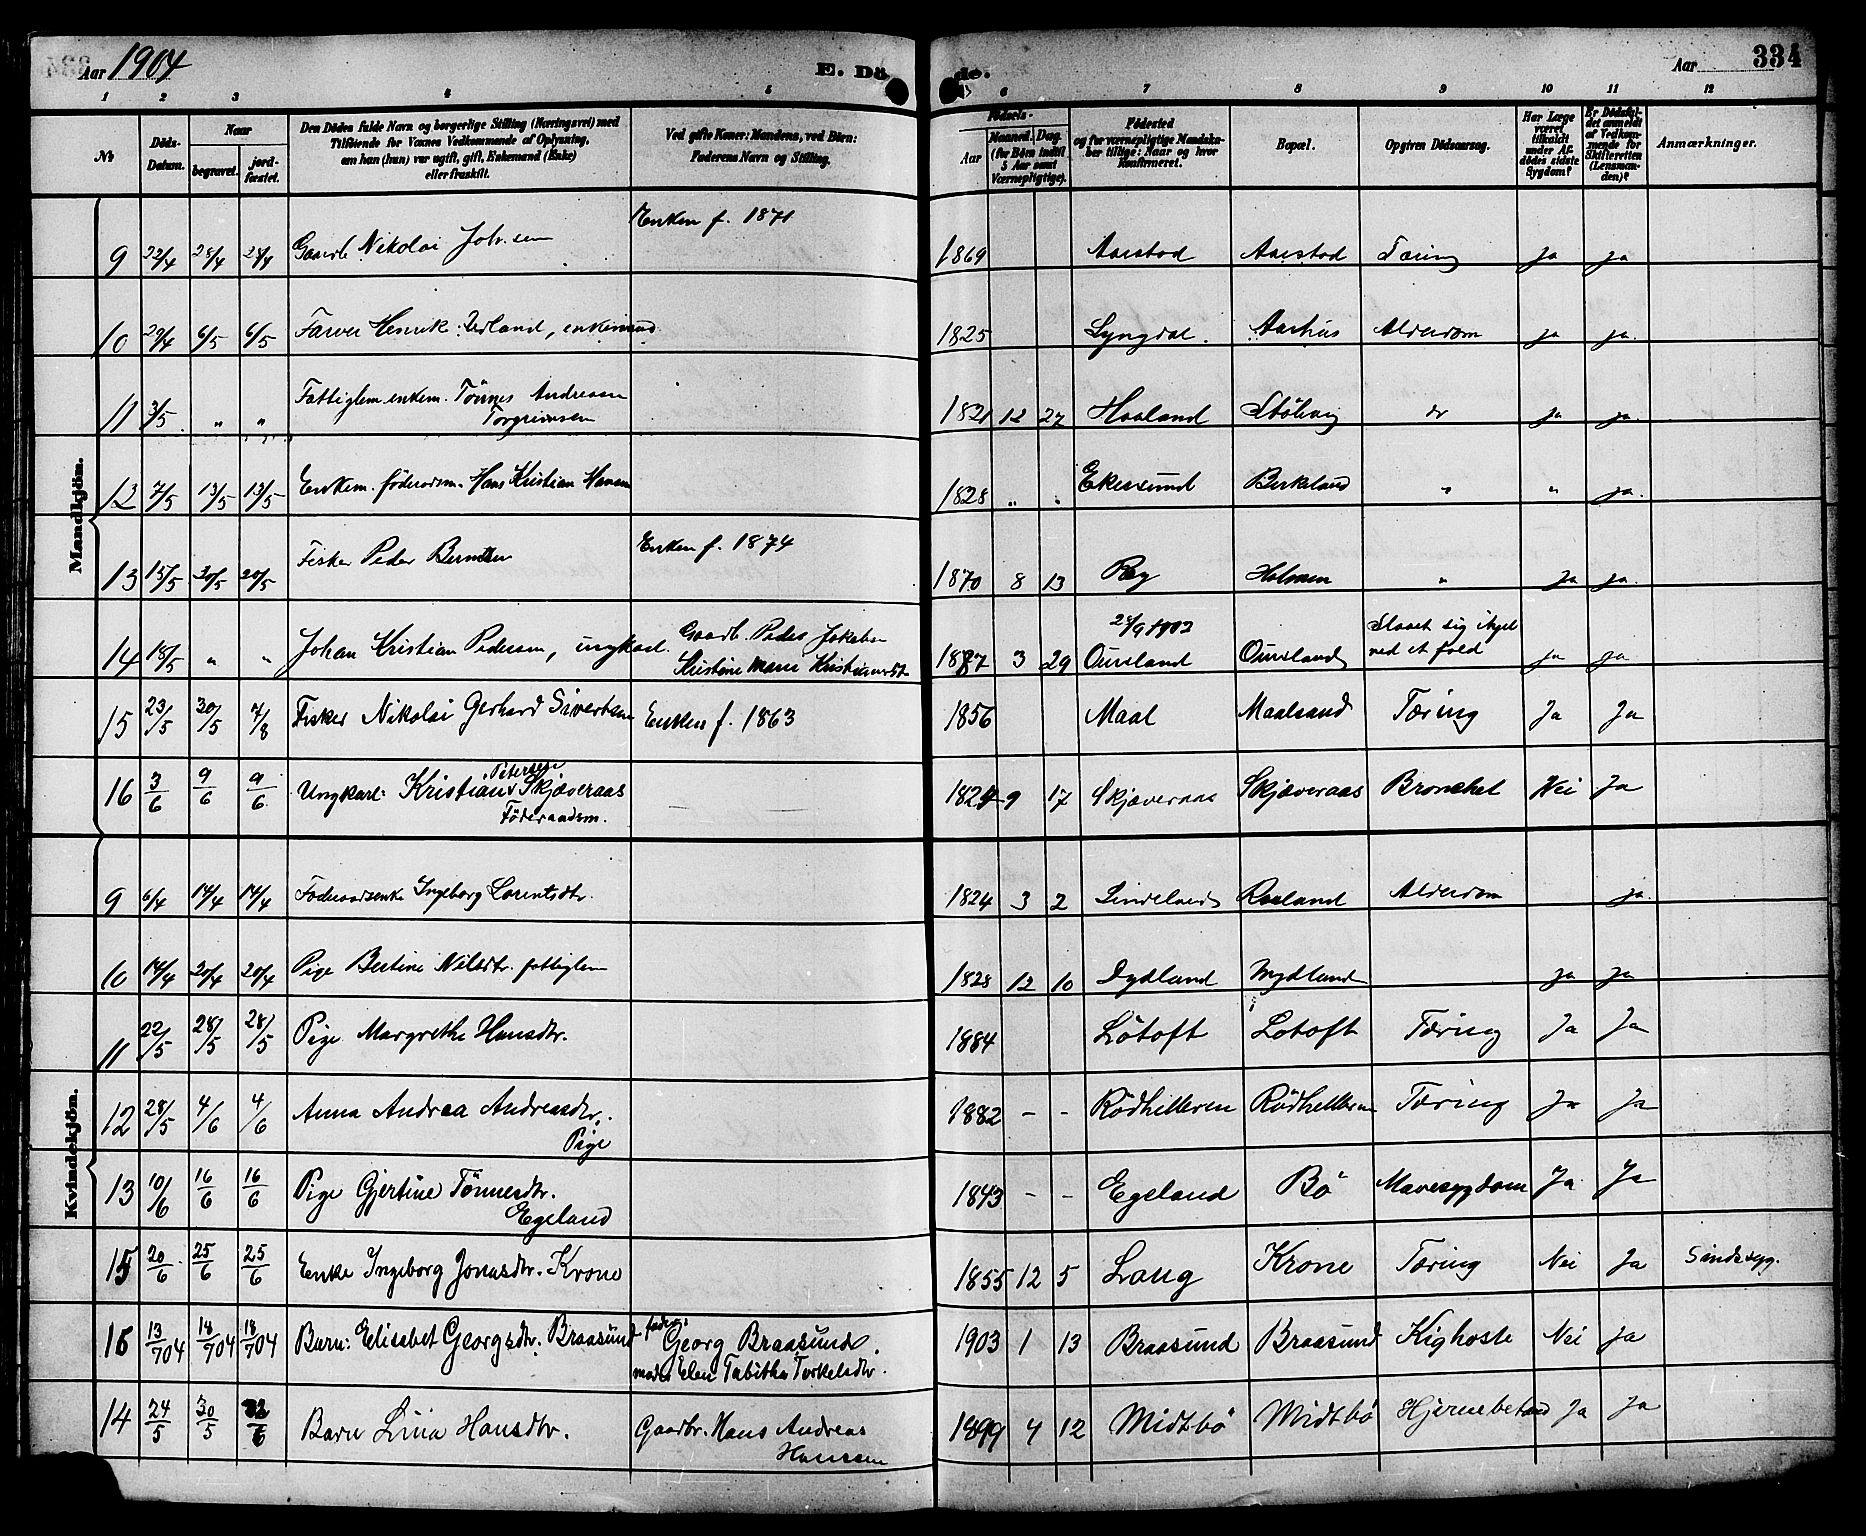 Aar 1904
E. Dö
de.
Aar
334
1 2 3 4 5 6 7 8 9 10 11 12
No
Döds-
Datum.
Naar
begravet.
jord-
fæstet.
Den Dödes fulde Navn og borgerlige Stilling (Næringsvei) med
Tilföiende for Voxnes Vedkommende af Oplysning,
om han (hun) var ugift, gift, Enkemand (Enke)
eller fraskilt.
Ved gifte Koner: Mandens, ved Börn:
Faderens Navn og Stilling.
Födsels-
Aar
Maaned.
Dag.
(for Börn indtil
5 Aar samt
Værnepligtige).
Födested
og for værnepligtige Mandska-
ber tillige: Naar og hvor
Konfirmeret.
Bopæl.
Opgiven Dödsaarsag.
Har Læge
været
tilkaldt
under Af-
dödes sidste
Sygdom?
Er Dödsfal-
det anmeldt
af Vedkom-
mende for
Skifteretten
(Lensman-
den)?
Anmærkninger.
Mandkjön.
9 22/4 28/4 28/4 Gaardb Nikolai Johnsen Enken f. 1871 1869 Aarstad Aarstad Tæring ja ja
10 29/4 6/5 6/5 Farver Henrik Urland, enkemand 1825 Lyngdal. Aarhus Alderdom ja ja.
11 3/5 " " Fattiglem enkem. Tönnes Andreasen
Torgrimsen 1821 12 27 Haaland Stölsvig do ja ja.
12 7/5 13/5 13/5 Enkem. föderaadsm. Hans Kristian Hansen 1828 " " Ekersund Birkeland " " ja.
13 15/5 20/5 20/5 Fisker Peder Berntsen Enken f. 1874 1870 8 13 Reg Holmen " Ja ja.
14 18/5 " " Johan Kristian Pedersen, ungkarl. Gaardb. Peder Jakobsen
Kristine Marie Kristiansdt 1887 3 29 28/9 1902
Oursland Oursland Slaaet sig ihjel
ved et fald ja ja
15 23/5 30/5 7/8 Fisker Nikolai Gerhard Sivertsen Enken f. 1863 1856 Maal Maalsand Tæring Ja Ja
16 3/6 9/6 9/6 Ungkarl: Kristian Petersen Skjæveraas
Föderaadsm. 1824 9 17 Skjæveraas Skjæveraas Bronchet Nei Ja
Kvindekjön.
9 6/4 14/4 14/4 Föderaadsenke Ingeborg Lorentsdtr. 1824 3 2 Lindeland Rosland Alderdom ja.
10 14/4 20/4 20/4 Pige Bertine Nilsdtr. fattiglem 1828 12 10 Dydland Mydland ja ja
11 22/5 28/5 28/5 Pige Margrethe Hansdtr. 1884 Lötoft Lotoft Tæring Ja Ja
12 28/5 4/6 4/6 Anna Andrea Andreasdtr.
Pige 1882 - - Rödhelleren Rödhelleren Tæring Ja Ja
13 10/6 16/6 16/6 Pige Gjertine Tönnesdtr.
Egeland 1843 - - Egeland Bö Mavesygdom Ja Ja
15 20/6 25/6 25/6 Enke Ingeborg Jonasdtr. Krone 1855 12 5 Laug Krone Tæring Nei Ja Sindssyg.
16 13/704 18/704 18/704 Barn: Elisabet Georgsdtr. Braasund fader:
Georg Braasund.
moder Elen Tabitha Torkelsdtr. 1903 1 13 Braasund Braasund Kighoste Nei ja
14 24/5 30/5 12/6 Barn Lina Hansdtr. Gaardbr. Hans Andreas
Hanssen 1899 4 12 Midtbö Midtbö Hjernebetænd Ja Ja